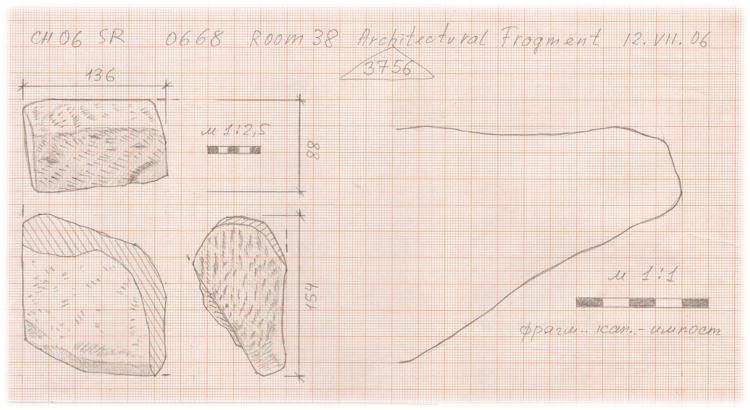 CH 06 SR 0668 Room 38 Architectural Fragment 12.VII.06
3756
136
м 1:2,5
88
154
м 1:1
фрагм.. кап.-импост